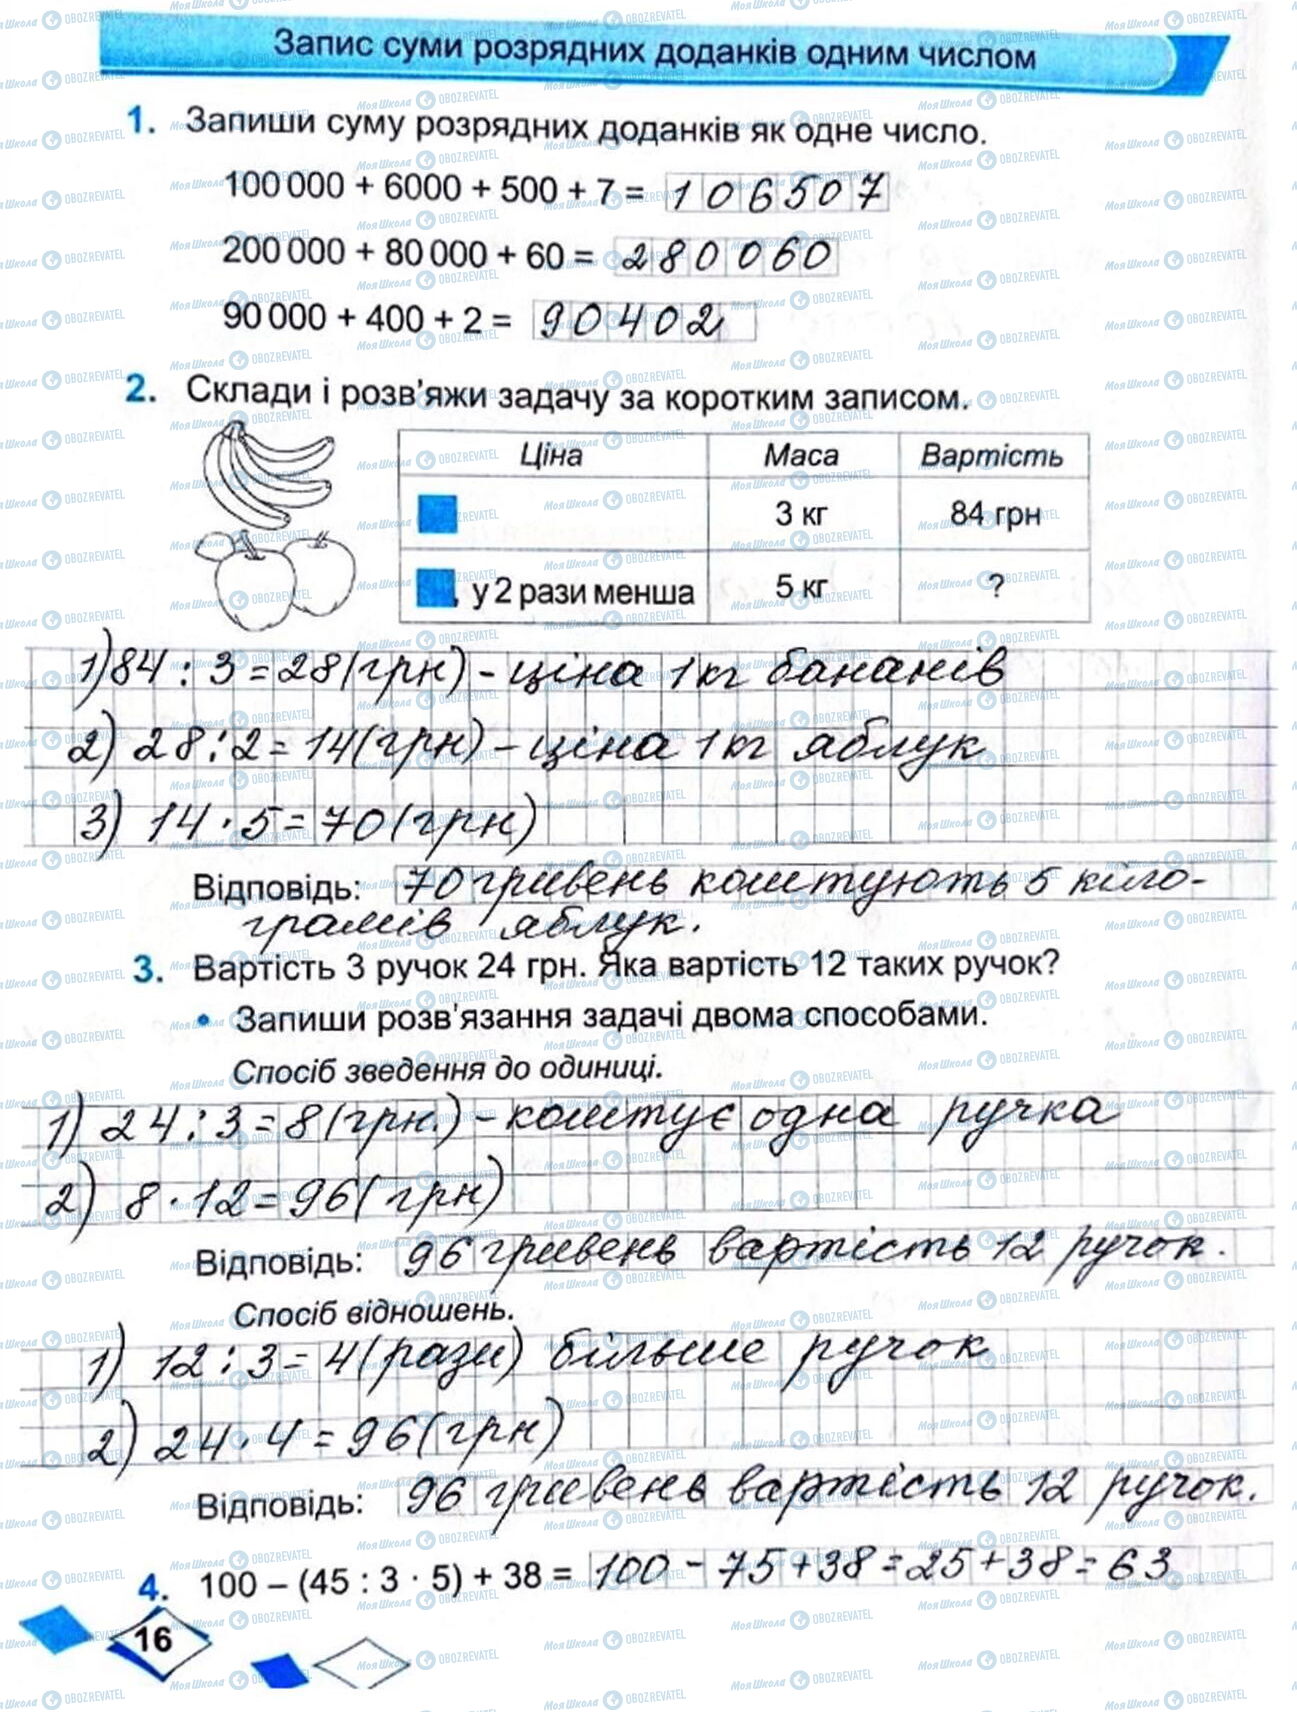 Запис суми розрядних доданків одним числом
1. Запиши суму розрядних доданків як одне число.
100 000 + 6000 + 500 + 7 = 106507
200 000 + 80 000 + 60 = 280060
90 000 + 400 + 2 = 90402
2. Склади і розв'яжи задачу за коротким записом.
Ціна Маса Вартість
3 кг 84 грн
, у 2 рази менша 5 кг ?
1) 84 : 3 = 28 (грн) - ціна 1 кг бананів
2) 28 : 2 = 14 (грн) - ціна 1 кг яблук
3) 14 · 5 = 70 (грн)
Відповідь: 70 гривень коштують 5 кіло-
грамів яблук.
3. Вартість 3 ручок 24 грн. Яка вартість 12 таких ручок?
• Запиши розв'язання задачі двома способами.
Спосіб зведення до одиниці.
1) 24 : 3 = 8 (грн) - коштує одна ручка
2) 8 · 12 = 96 (грн)
Відповідь: 96 гривень вартість 12 ручок.
Спосіб відношень.
1) 12 : 3 = 4 (рази) більше ручок
2) 24 · 4 = 96 (грн)
Відповідь: 96 гривень вартість 12 ручок.
4. 100 – (45 : 3 · 5) + 38 = 100 - 75 + 38 = 25 + 38 = 63
16
МояШкола OBOZREVATEL